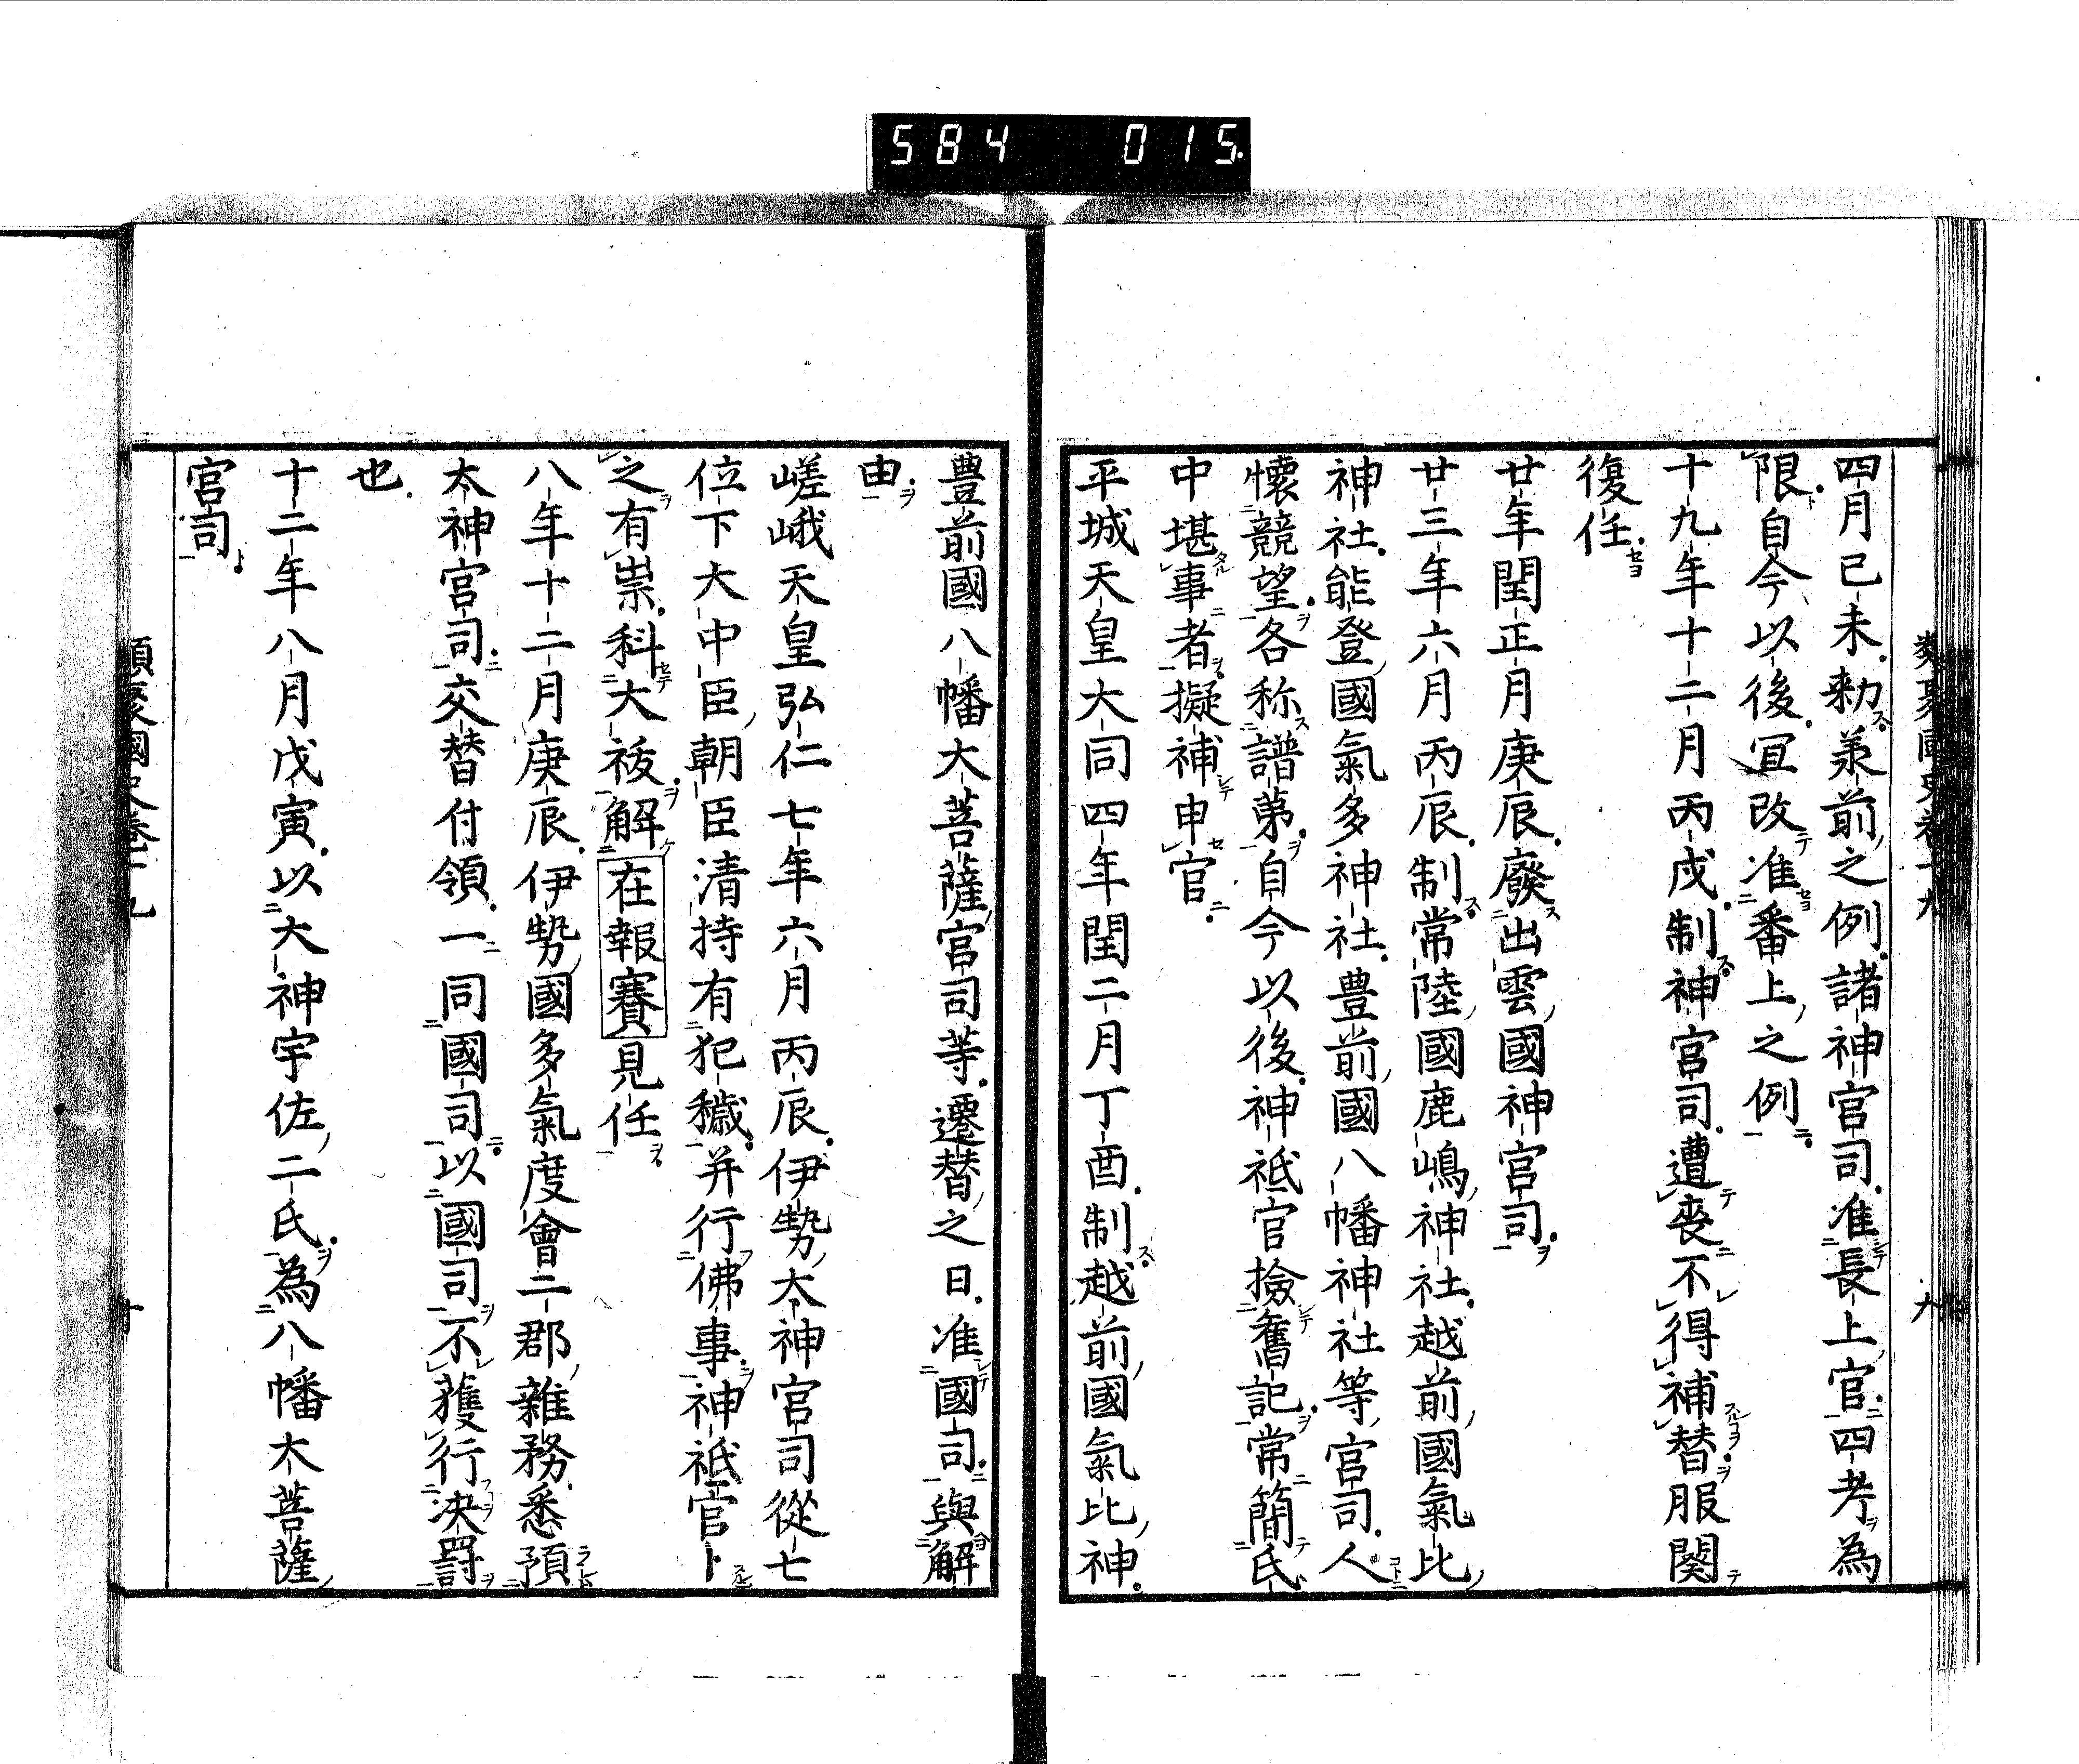 584 015
四月己未勅承前之例諸神宮司准長上官四考為
限自今以後宜改准番上之例
十九年十二月丙戌制神宮司遭喪不得補替服闋
復任
廿年閏正月庚辰廢出雲國神宮司
廿三年六月丙辰制常陸國鹿嶋神社越前國氣比
神社能登國氣多神社豊前國八幡神社等宮司人
懷競望各称譜第自今以後神祇官撿舊記常簡氏
中堪事者擬補申官
平城天皇大同四年閏二月丁酉制越前國氣比神
豊前國八幡大菩薩宮司等遷替之日准國司與解
由
嵯峨天皇弘仁七年六月丙辰伊勢大神宮司從七
位下大中臣朝臣清持有犯穢并行佛事神祇官卜
之有祟科大祓解在報賽見任
八年十二月庚辰伊勢國多氣度會二郡雜務悉預
太神宮司交替付領一同國司以國司不獲行決罸
也
十二年八月戊寅以大神宇佐二氏為八幡大菩薩
宮司
類聚國史卷十九